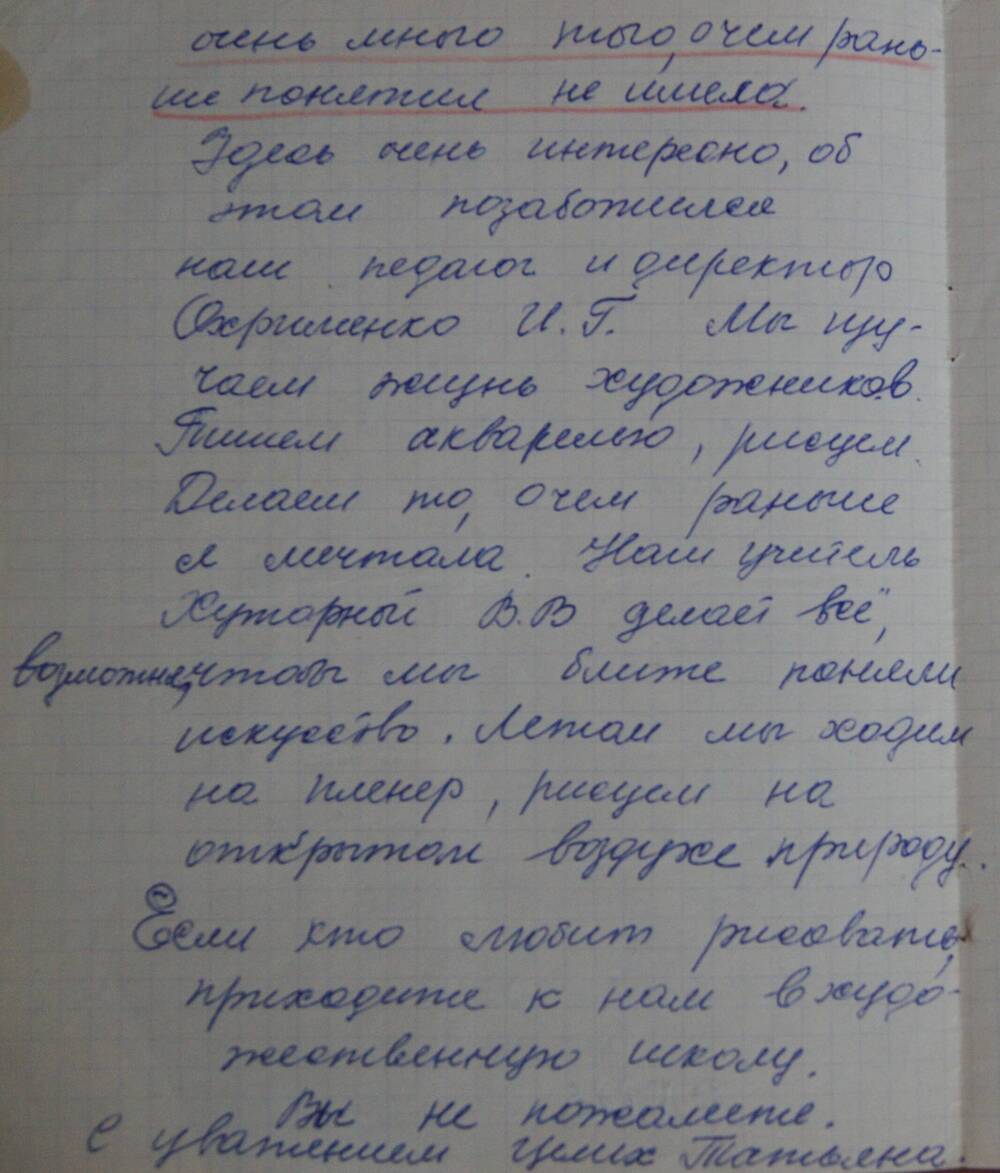 очень много того, о чем рань-
ше понятия не имела.
Здесь очень интересно, об
этом позаботился
наш педагог и директор
Охрименко И.Г. Мы изу-
чаем жизнь художников.
Пишем акварелью, рисуем.
Делаем то, о чем раньше
я мечтала. Наш учитель
Хуторный В.В делает всё,
возможное, чтобы мы ближе поняли
искусство. Летом мы ходим
на пленер, рисуем на
открытом воздухе природу.
Если кто любит рисовать,
приходите к нам в худо-
жественную школу.
Вы не пожалеете.
С уважением Татьяна.